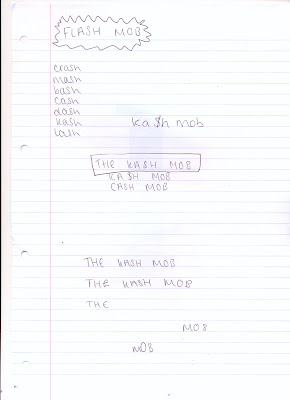 FLASH MOB
crash
mash
bash
cash
dash
kash
lash
ka$h mob
THE KASH MOB
KA$H MOB
CASH MOB
THE KASH MOB
THE KASH MOB
THE
MOB
MOB